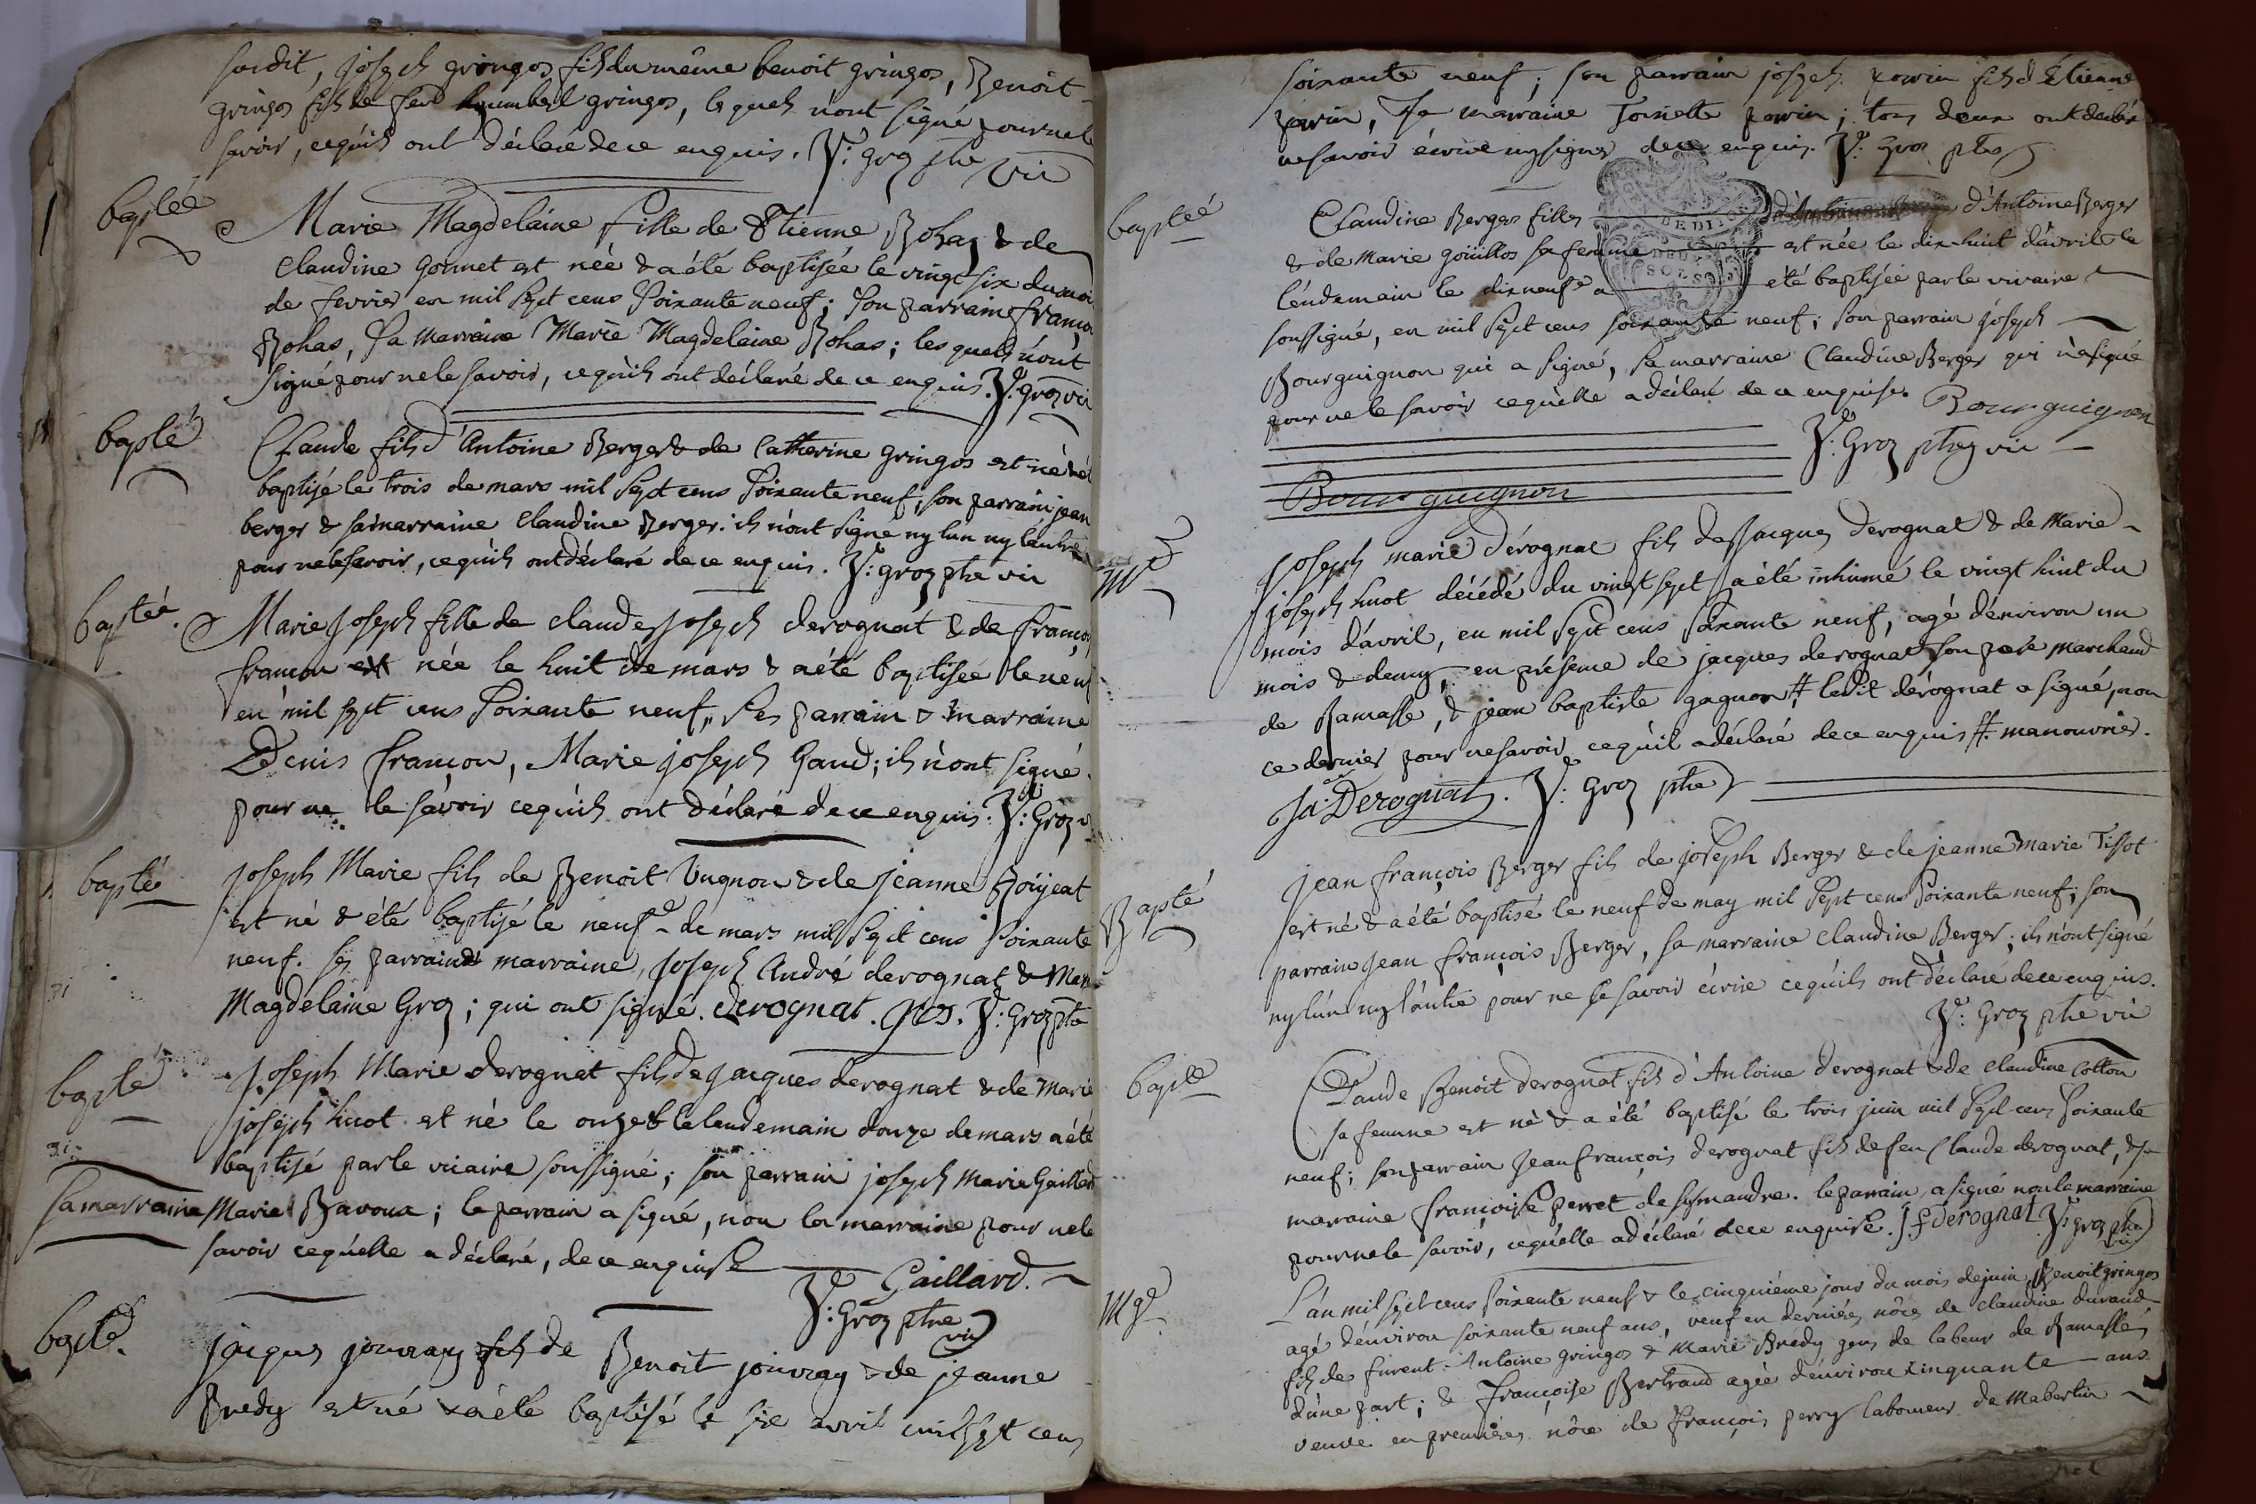 susdit, joseph gringos fils du même benoit gringos, Benoit
gringos fils de feu humbert gringos, lesquels n'ont signé pour ne le
savoir, ce qu'ils ont déclaré de ce enquis. J.d: Groz ptre vic
baptée
Marie Magdelaine fille de Etienne Bohas & de
Claudine gonnet est née & a été baptisée le vingt six du mois
de fevrier en mil sept cens soixante neuf; son parrain françois
Bohas, sa marraine Marie Magdelaine Bohas; les quels n'ont
signé pour ne le savoir, ce qu'ils ont déclaré de ce enquis. J.d: groz vic
bapté
Claude fils d'Antoine Berger & de Catherine gringos est né & a été
baptisé le trois de mars mil sept cens soixante neuf, son parrain jean
berger & sa marraine Claudine Berger: ils n'ont signé ny l'un ny l'autre
pour ne le savoir, ce qu'ils ont déclaré de ce enquis. J.d: groz ptre vic
baptée.
Marie Joseph fille de claude joseph derognat & de françoise
françon est née le huit de mars & a été baptisée le neuf
en mil sept cens soixante neuf, ses parrain & marraine
Denis françon, Marie joseph Gaud; ils n'ont signé
pour ne le savoir ce qu'ils ont déclaré de ce enquis. J.d: Groz v
bapté
joseph Marie fils de Benoit Vugnon & de Jeanne Boujeat
est né & été baptisé le neuf de mars mil sept cens soixante
neuf. ses parrain & marraine, Joseph André derognat & Marie
Magdelaine Groz; qui ont signé. derognat. J.d: Groz ptre
bapté
Joseph Marie derognat fils de Jacques derognat & de Marie
joseph huot est né le onze & le lendemain douze de mars a été
baptisé par le vicaire soussigné; son parrain joseph Marie Gaillard
sa marraine Marie Bavoux; le parrain a signé, non la marraine pour ne le
savoir ce qu'elle a déclaré, de ce enquise
Gaillard.
J.d: Groz ptre vic
bapté.
jacques jouvray fils de Benoit jouvray & de jeanne
Bredy est né & a été baptisé le six avril mil sept cens
soixante neuf; son parrain joseph perrin fils d'Étienne
perrin, sa marraine Toinette perrin; tous deux ont declaré
ne savoir écrire ny signer de ce enquis. J.d: Groz ptre
baptéé
Claudine Berger fille d'Antoine Berger
& de Marie goüillos sa femme est née le dix huit d'avril & le
lendemain le dixneuf.e a été baptisée par le vicaire
soussigné, en mil sept cens soixante neuf; son parrain Joseph
Bourguignon qui a signé, sa marraine Claudine Berger qui n'a signé
pour ne le savoir ce qu'elle a déclaré de ce enquise. Bourguignon
J.d: Groz ptre vic
Bourguignon
Mt
Joseph marie dérognat fils de Jacques derognat & de Marie
joseph huot décédé du vingt sept a été inhumé le vingt huit du
mois d'avril, en mil sept cens soixante neuf, agé d'environ un
mois & demy, en présence de jacques derognat son pere marchand
de Ramasse, & jean baptiste gagnon # ledit dérognat a signé, non
ce dernier pour ne savoir ce qu'il a déclaré de ce enquis #. manouvrier.
Ja: Derognat. J.d: Groz ptre
Bapté
Jean françois Berger fils de joseph Berger & de jeanne Marie Tissot
est né & a été baptisé le neuf de may mil sept cens soixante neuf; son
parrain Jean françois Berger, sa marraine claudine Berger; ils n'ont signé
ny l'un ny l'autre pour ne le savoir écrire ce qu'ils ont déclaré de ce enquis.
J.d: Groz ptre vic
bapté
Claude Benoit derognat fils d'Antoine derognat & de Claudine Cotton
sa femme est né & a été baptisé le trois juin mil sept cens soixante
neuf; son parrain Jean françois derognat fils de feu Claude derognat, & sa
marraine françoise perret de symandre. le parrain a signé non la marraine
pour ne le savoir, ce qu'elle a déclaré de ce enquise. J f derognat J.d: groz ptre vic
Mge
L'an mil sept cens soixante neuf & le cinquième jour du mois de juin, Benoit gringos
agé d'environ soixante neuf ans, veuf en dernières nôces de Claudine durand
fils de furent Antoine gringos & Marie Bredy gens de labeur de Ramasse,
d'une part; & Françoise Bertrand agée d'environ cinquante ans
veuve en premières nôces de François perry laboureur de Mabertin